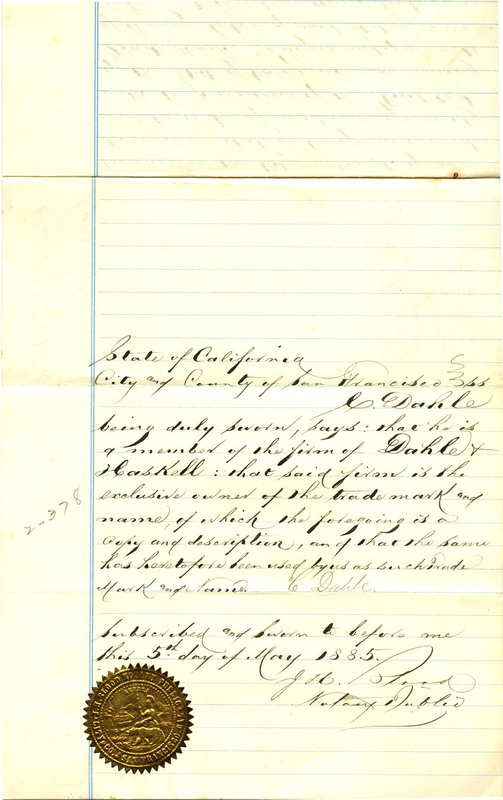 State of California
City and County of San Francisco } ss
C. Dahle
being duly sworn, says: that he is
a member of the firm of Dahle &
Haskell: that said firm is the
exclusive owner of the trade mark and
name, of which the foregoing is a
copy and description, and that the same
has heretofore been used by us as such Trade
Mark and Name. C Dahle.
2-378
Subscribed and sworn to before me
this 5th day of May 1885.
J. H.
Notary Public